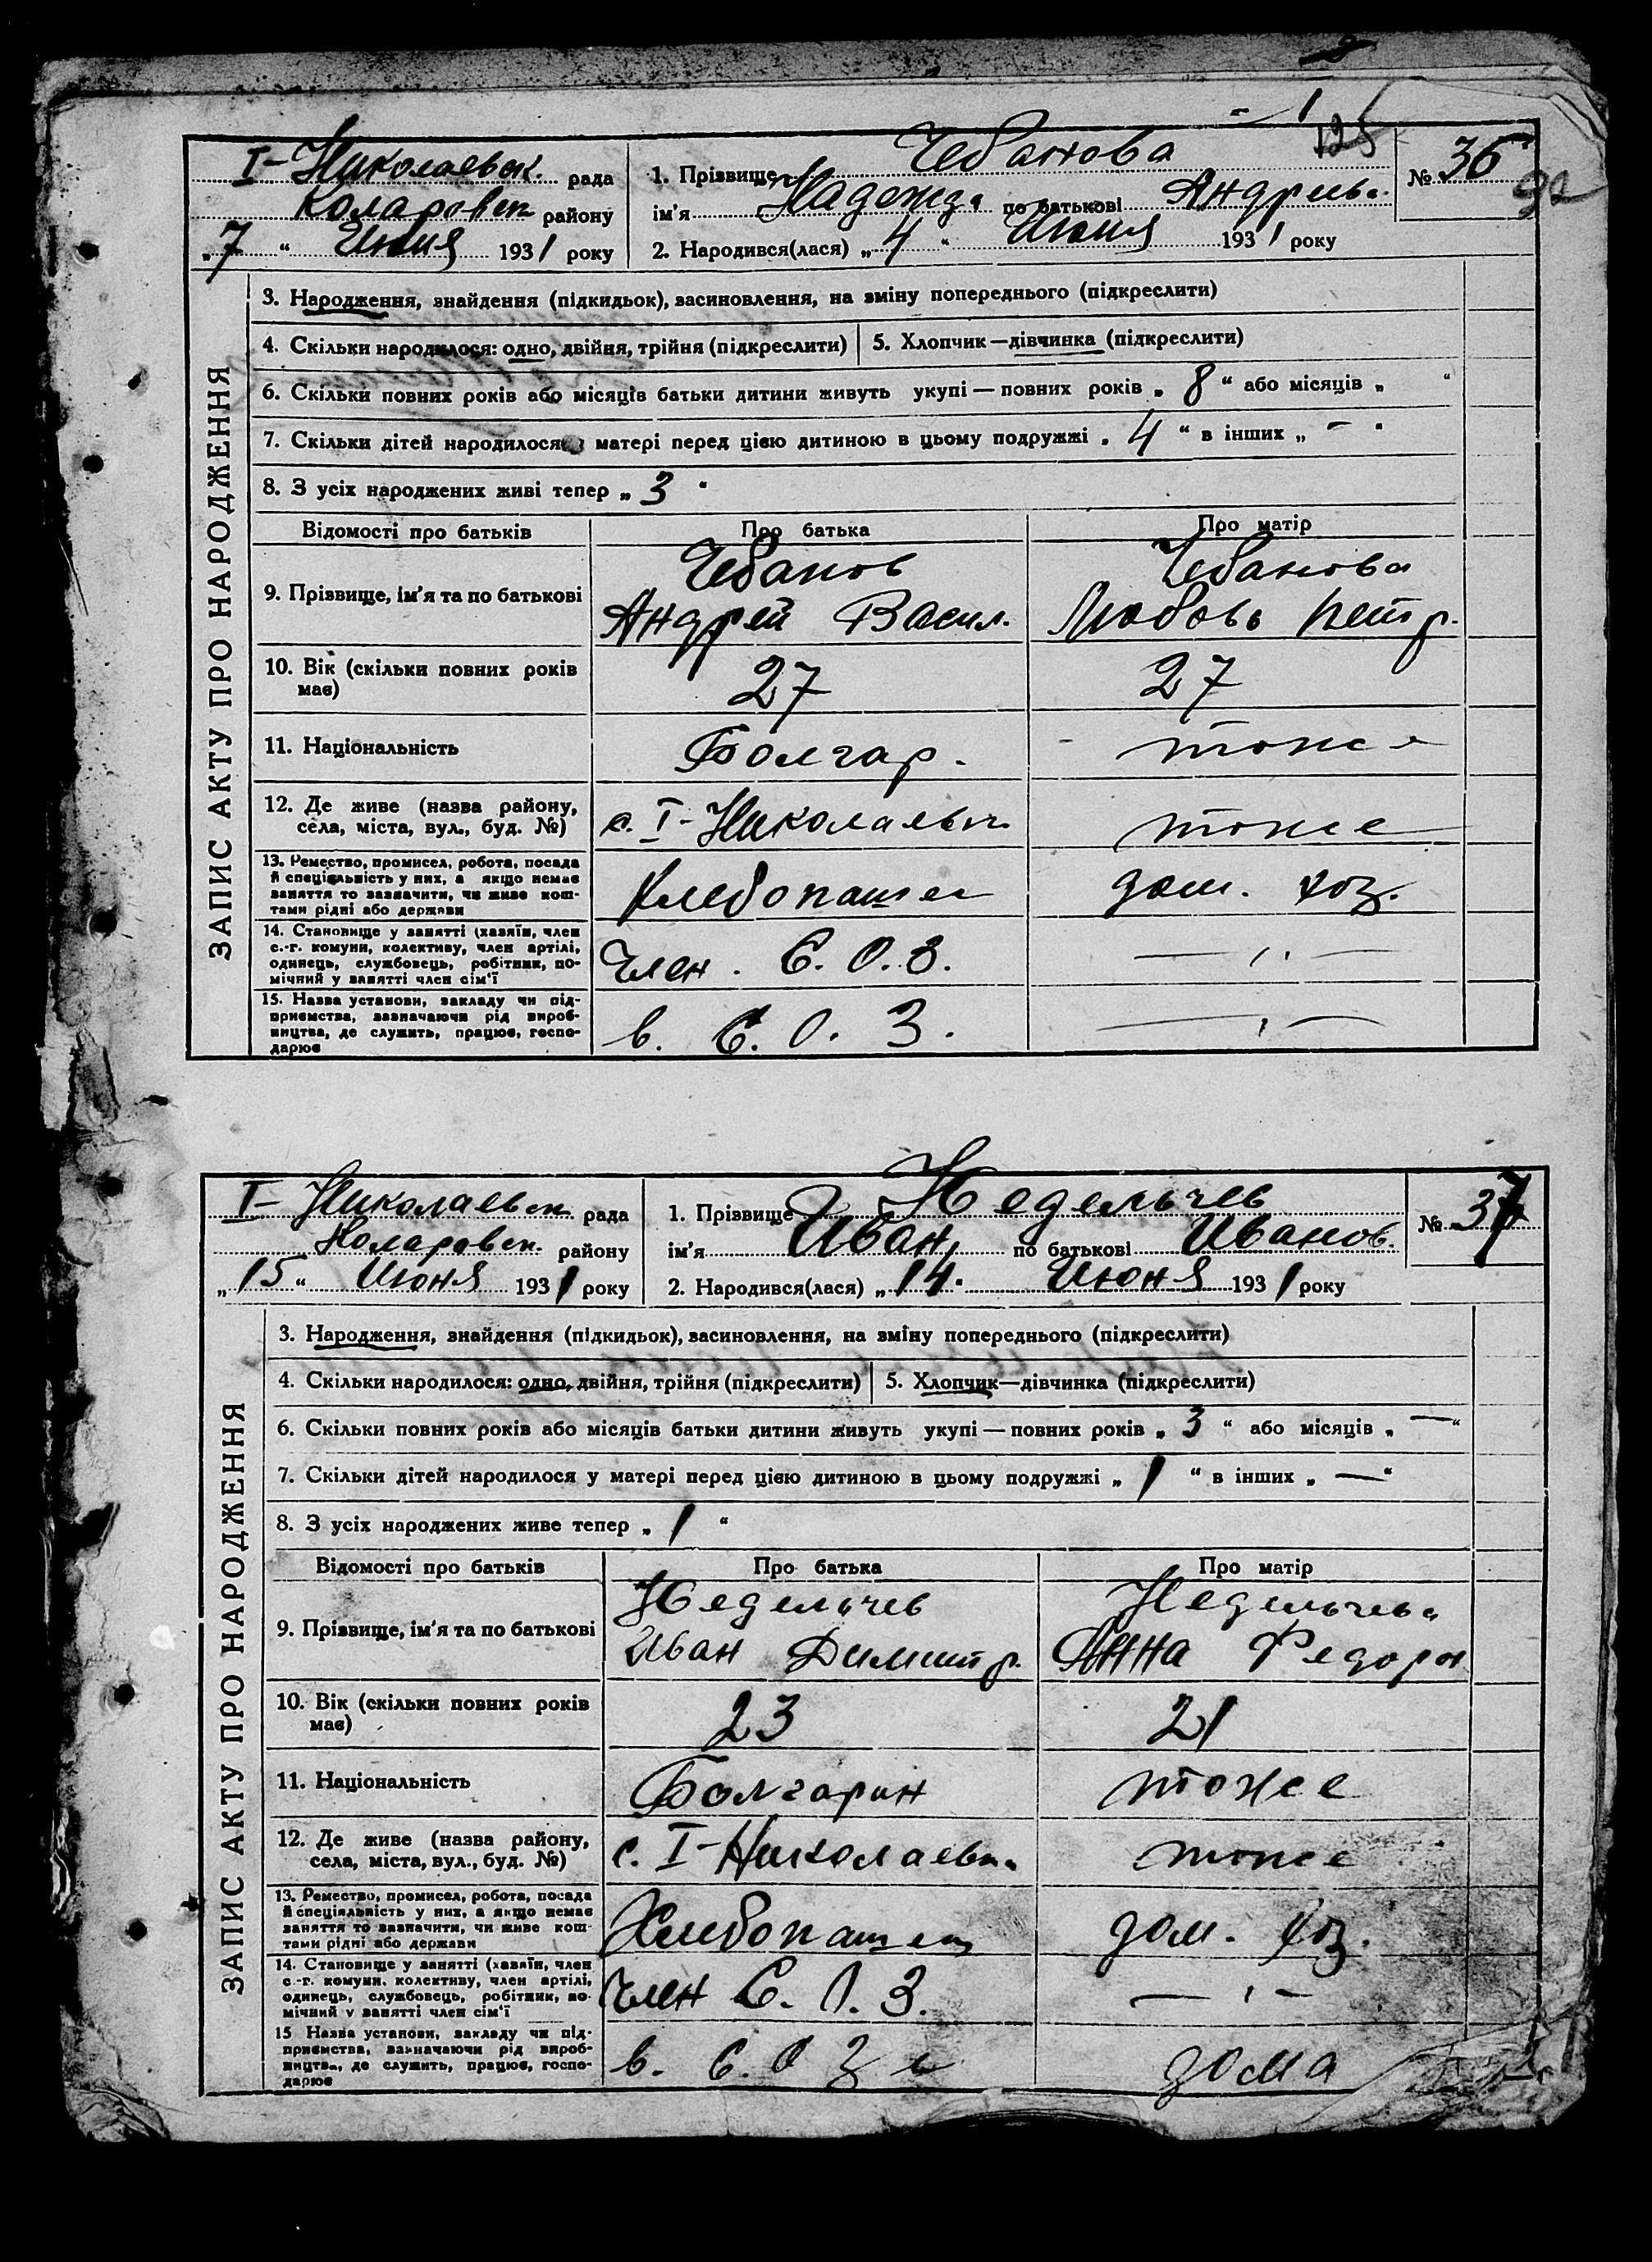 125
I-Николаевск. рада
Коларовск району
„7“ Июня 1931 року
1. Прізвище Чебанова
ім'я Надежда по батькові Андреев.
2. Народився(лася) „4“ Июня 1931 року
№ 36
92
ЗАПИС АКТУ ПРО НАРОДЖЕННЯ
3. Народження, знайдення (підкидьок), засиновлення, на зміну попереднього (підкреслити)
4. Скільки народилося: одно, двійня, трійня (підкреслити) 5. Хлопчик—дівчинка (підкреслити)
6. Скільки повних років або місяців батьки дитини живуть укупі — повних років „ 8 “ або місяців „ “
7. Скільки дітей народилося у матері перед цією дитиною в цьому подружжі „ 4 “ в інших „ – “
8. З усіх народжених живі тепер „ 3 “
Відомості про батьків Про батька Про матір
9. Прізвище, ім'я та по батькові Чебанов Чебанова
Андрей Васил. Любовь Петр.
10. Вік (скільки повних років 27 27
має)
11. Національність Болгар. тоже
12. Де живе (назва району, с. I-Николаевк. тоже
села, міста, вул., буд. №)
13. Ремество, промисел, робота, посада Хлебопашец дом. хоз.
й спеціяльність у них, а якщо немає
заняття то зазначити, чи живе кош-
тами рідні або держави
14. Становище у занятті (хазяїн, член Член С.О.З. — „ —
с.-г. комуни, колективу, член артілі,
одинець, службовець, робітник, по-
мічний у занятті член сім'ї
15. Назва установи, закладу чи під- в. С.О.З. — „ —
приємства, зазначаючи рід вироб-
ництва, де служить, працює, госпо-
дарює
I-Николаевск рада
Коларовск. району
„15“ Июня 1931 року
1. Прізвище Недельчев
ім'я Иван, по батькові Иванов.
2. Народився(лася) „14. Июня 1931 року
№ 37
ЗАПИС АКТУ ПРО НАРОДЖЕННЯ
3. Народження, знайдення (підкидьок), засиновлення, на зміну попереднього (підкреслити)
4. Скільки народилося: одно, двійня, трійня (підкреслити) 5. Хлопчик—дівчинка (підкреслити)
6. Скільки повних років або місяців батьки дитини живуть укупі — повних років „ 3 “ або місяців „ — “
7. Скільки дітей народилося у матері перед цією дитиною в цьому подружжі „ 1 “ в інших „ — “
8. З усіх народжених живе тепер „ 1 “
Відомості про батьків Про батька Про матір
9. Прізвище, ім'я та по батькові Недельчев Недельчева
Иван Димитр. Анна Федоро
10. Вік (скільки повних років 23 21
має)
11. Національність Болгарин тоже
12. Де живе (назва району, с. I-Николаевк. тоже
села, міста, вул., буд. №)
13. Ремество, промисел, робота, посада Хлебопашец дом. хоз.
й спеціяльність у них, а якщо немає
заняття то зазначити, чи живе кош-
тами рідні або держави
14. Становище у занятті (хазяїн, член Член С.О.З. — „ —
с.-г. комуни, колективу, член артілі,
одинець, службовець, робітник, по-
мічний у занятті член сім'ї
15 Назва установи, закладу чи під- в. СОЗе дома
приємства, зазначаючи рід вироб-
ництва, де служить, працює, госпо-
дарює